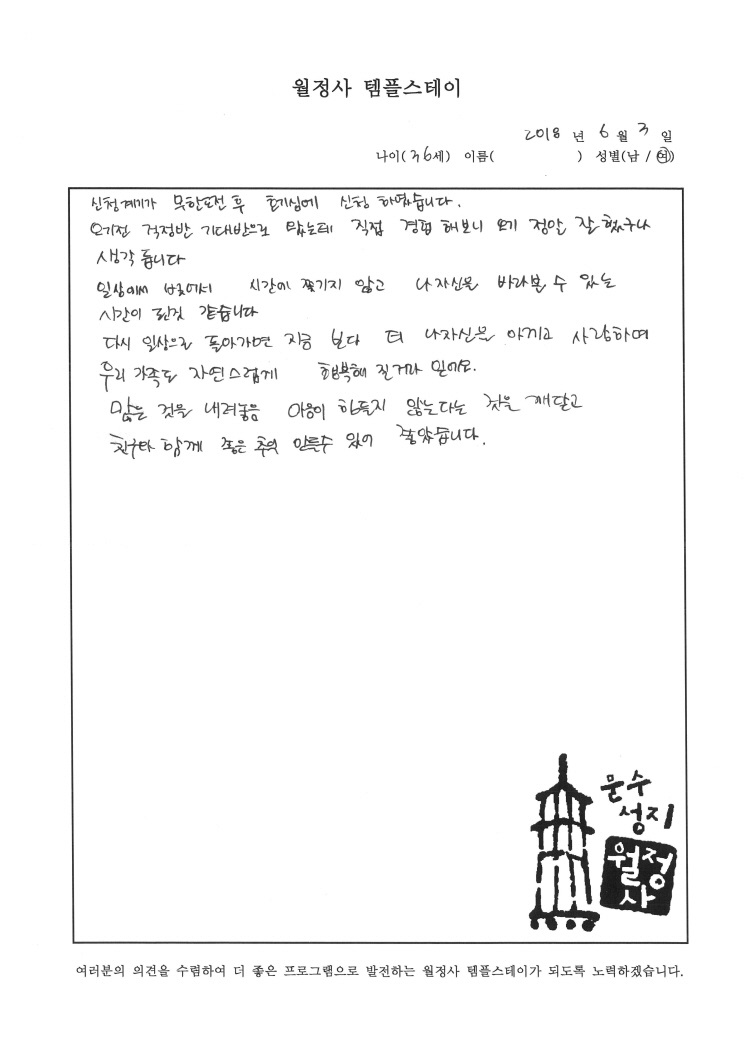 월정사 템플스테이
2018 년 6 월 3 일
나이(36세) 이름( ) 성별(남 / 여)
신청계기가 무한도전 후 호기심에 신청 하였습니다.
오기전 걱정반 기대반으로 왔는데 직접 경험 해보니 오기 정말 잘 했구나
생각 듭니다
일상에서 벗어서 시간에 쫓기지 않고 나 자신을 바라볼 수 있는
시간이 된것 같습니다
다시 일상으로 돌아가면 지금 보다 더 나자신을 아끼고 사랑하며
우리 가족도 자연스럽게 행복해 질거라 믿어요.
많은 것을 내려놓음 마음이 힘들지 않는다는 것을 깨달고
친구와 함께 좋은 추억 만들수 있어 좋았습니다.
문수
성지
월정
사
여러분의 의견을 수렴하여 더 좋은 프로그램으로 발전하는 월정사 템플스테이가 되도록 노력하겠습니다.